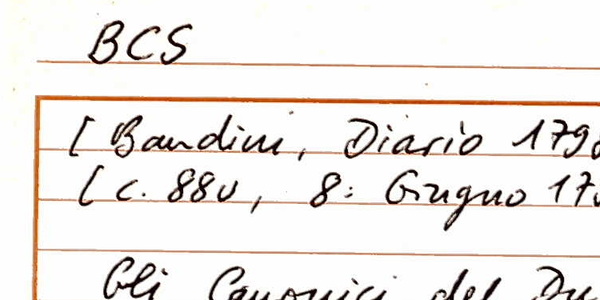 BCS
[ Bandini, Diario 179
[ c. 88v, 8: Giugno 17
Gli Canonici del Du